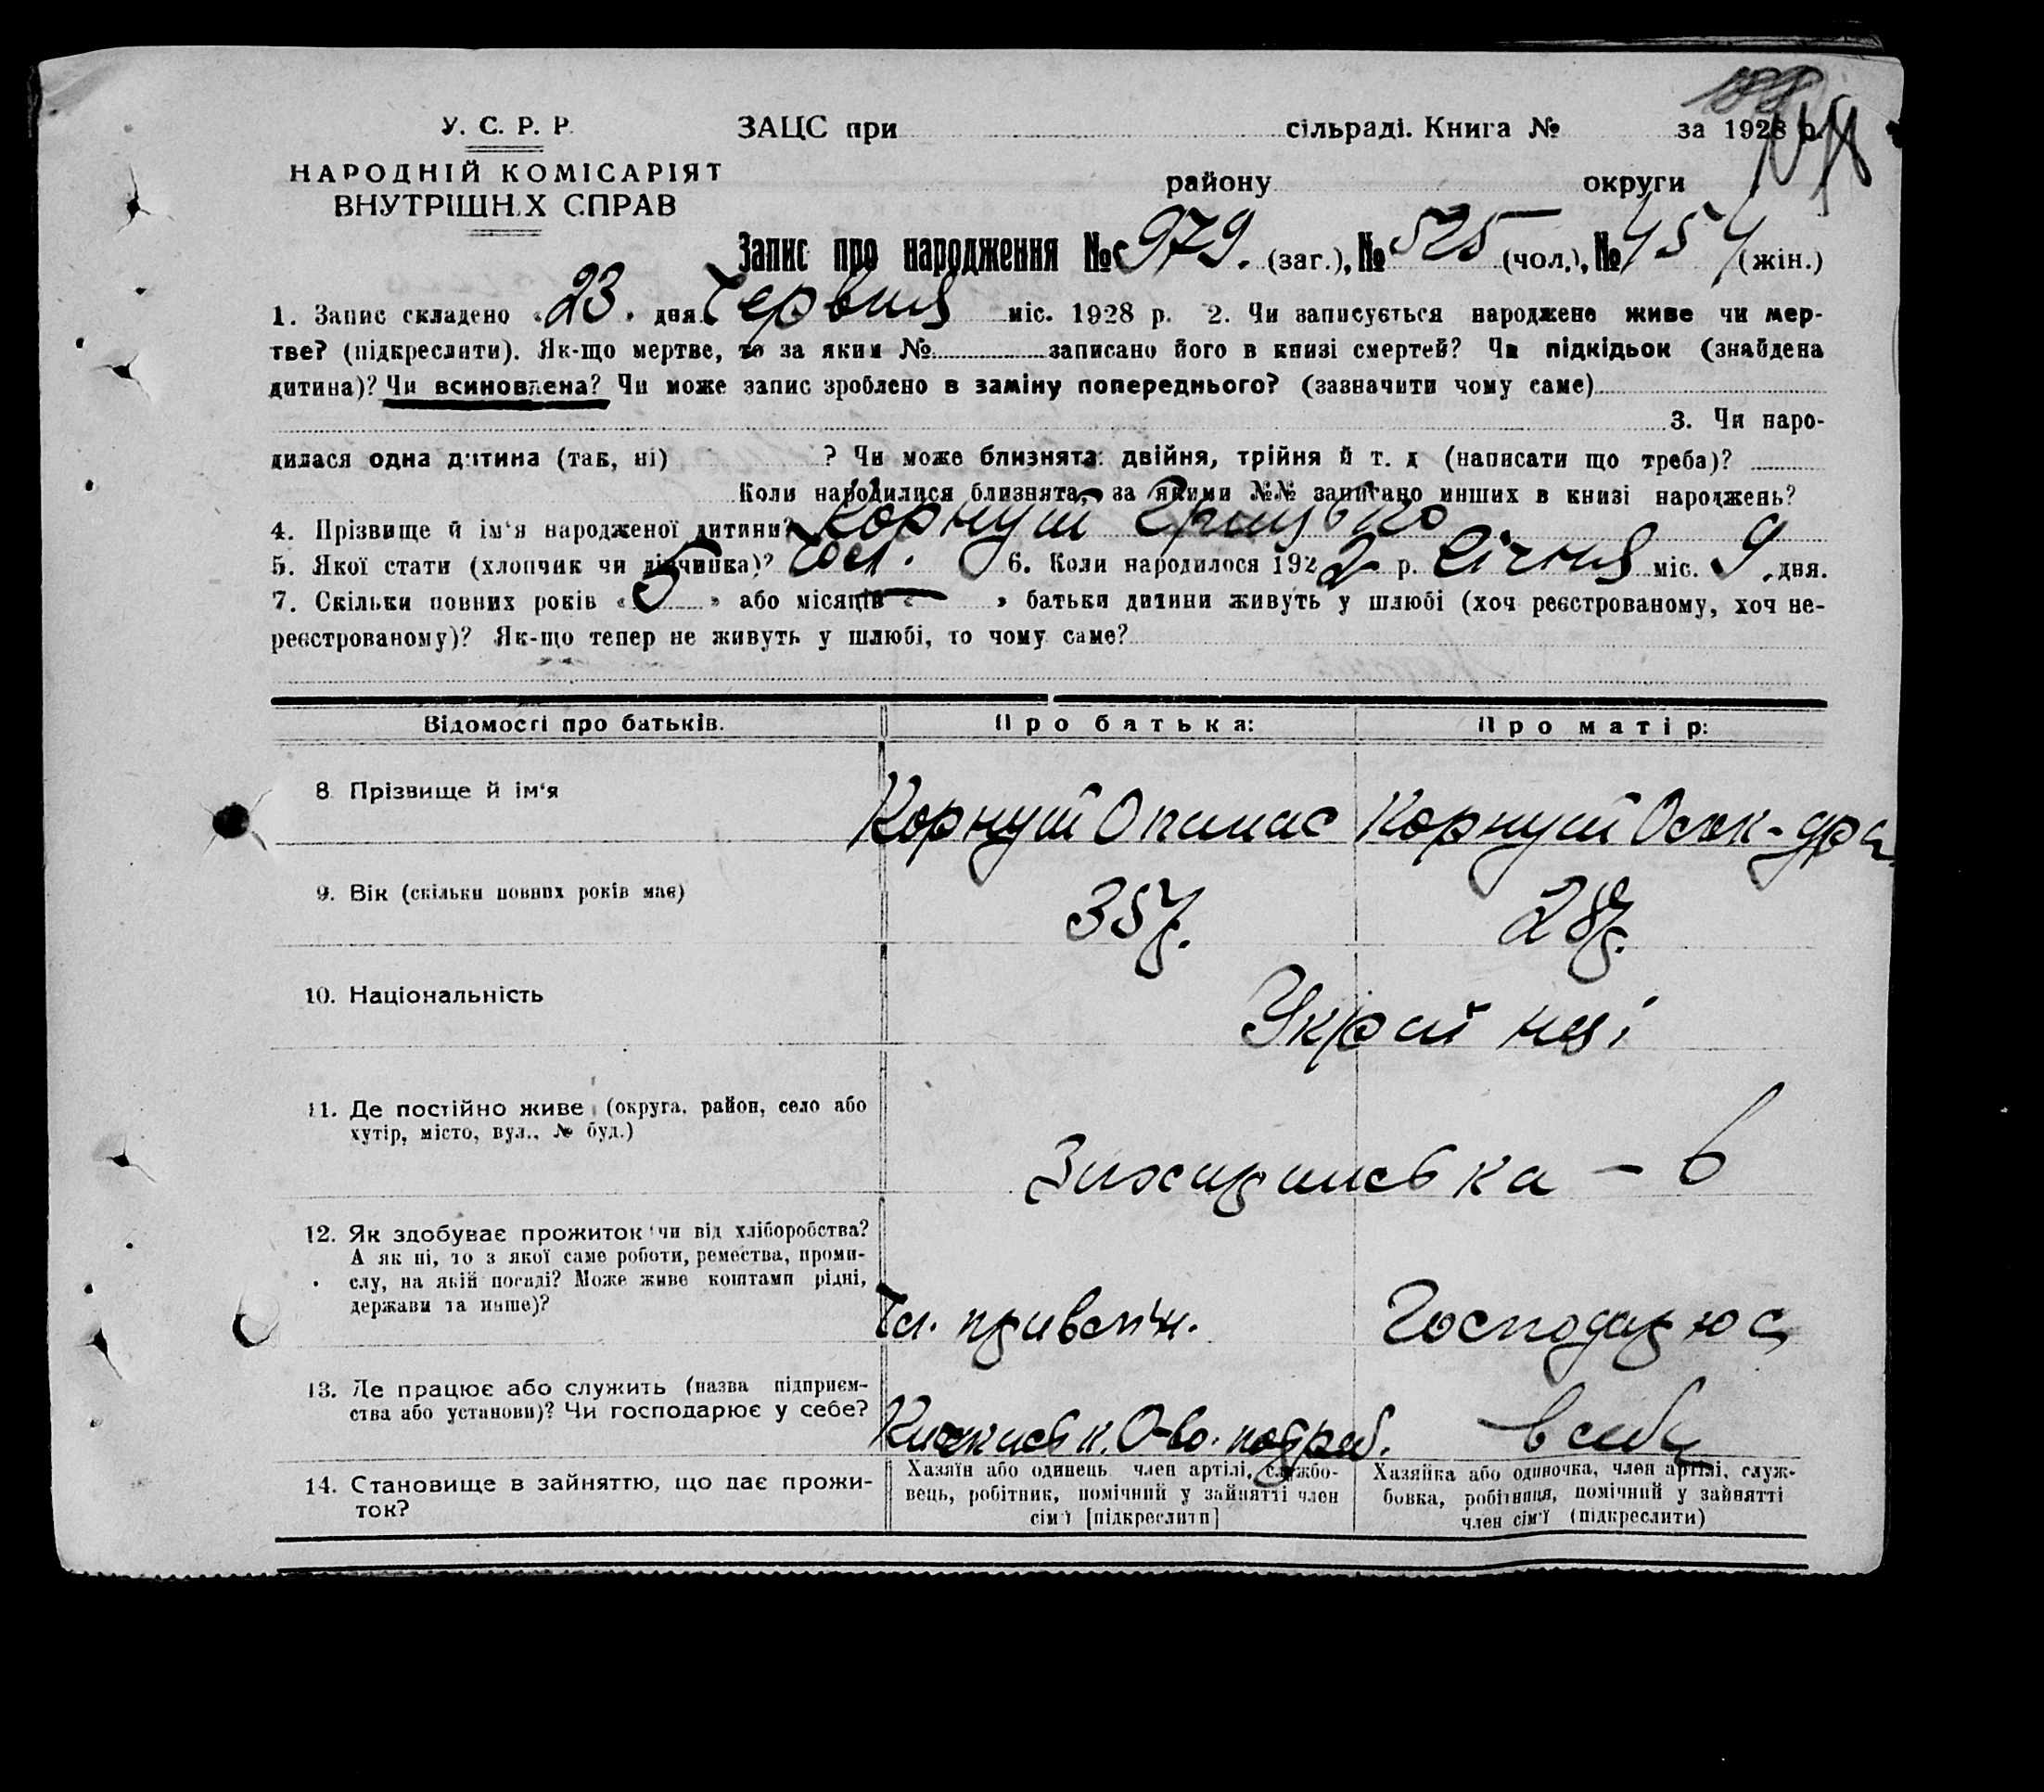 У. С. Р. Р.
НАРОДНІЙ КОМІСАРІЯТ
ВНУТРІШНІХ СПРАВ
ЗАЦС при сільраді. Книга № за 1928 р.
району округи
Запис про народження № 979. (заг.), № 525 (чол.), № 454 (жін.)
1. Запис складено «23» дня Червня міс. 1928 р. 2. Чи записується народжене живе чи мер-
тве? (підкреслити). Як-що мертве, то за яким № записано його в книзі смертей? Чи підкідьок (знайдена
дитина)? Чи всиновлена? Чи може запис зроблено в заміну попереднього? (зазначити чому саме)
3. Чи наро-
дилася одна дитина (так, ні) ? Чи може близнята: двійня, трійня й т. д (написати що треба)?
Коли народилися близнята, за якими №№ записано инших в книзі народжень?
4. Прізвище й ім'я народженої дитини? Корнуш Грицько
5. Якої стати (хлопчик чи дівчинка)? чол. 6. Коли народилося 1922 р. Січня міс. 9 дня.
7. Скільки повних років «5» або місяців «—» батьки дитини живуть у шлюбі (хоч реєстрованому, хоч не-
реєстрованому)? Як-що тепер не живуть у шлюбі, то чому саме?
Відомості про батьків. Про батька: Про матір:
8 Прізвище й ім'я Корнуш Опанас Корнуш
9. Вік (скільки повних років має) 35 28
10. Національність Українці
11. Де постійно живе (округа, район, село або
хутір, місто, вул., № буд.) – 6
12. Як здобуває прожиток чи від хліборобства?
А як ні, то з якої саме роботи, ремества, проми-
слу, на якій посаді? Може живе коштами рідні,
держави та инше)?
13. Де працює або служить (назва підприєм-
ства або установи)? Чи господарює у себе? О-во. в себе
14. Становище в зайняттю, що дає прожи-
ток?
Хазяїн або одинець член артілі, службо-
вець, робітник, помічний у зайнятті член
сім'ї [підкреслити]
Хазяйка або одиночка, член артілі, служ-
бовка, робітниця, помічний у зайнятті
член сім'ї (підкреслити)